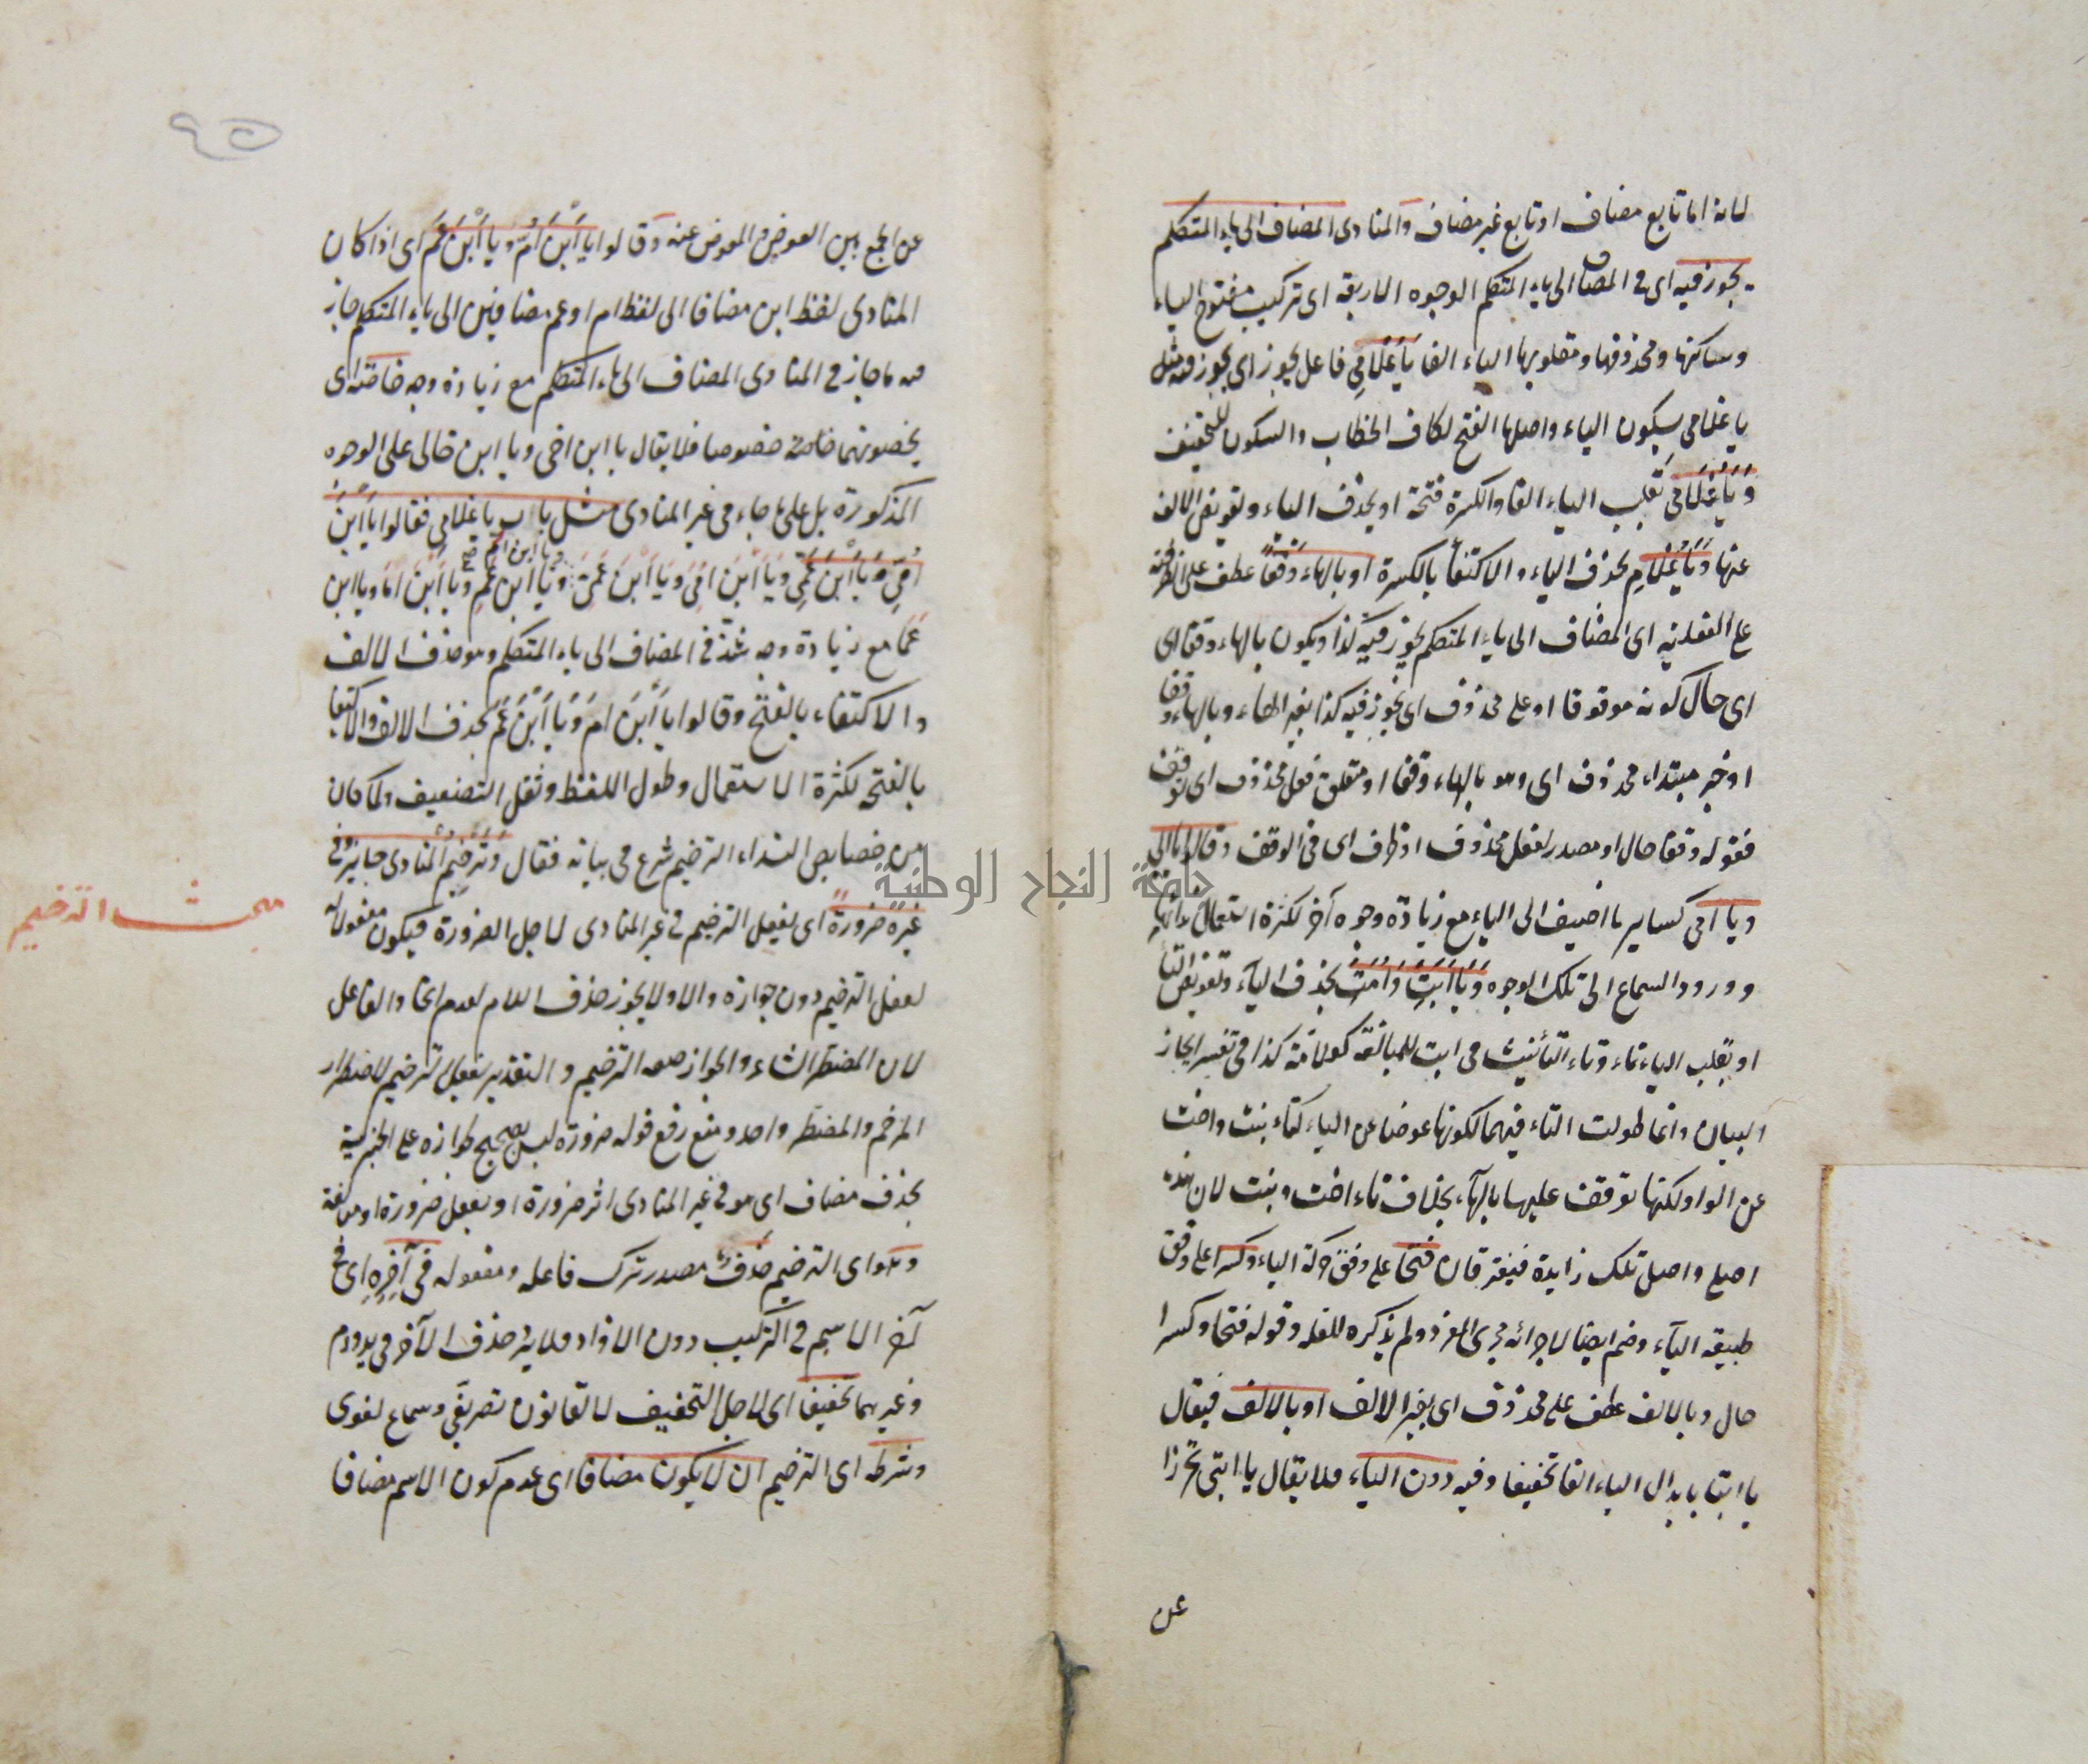 لانه اما تابع مضاف او تابع غير مضاف والمنادى المضاف الى ياء المتكلم
يجوز فيه اى فى المضاف الى ياء المتكلم الوجوه الاربعة اى تركيب مفتوح الياء
وساكنها ومحذوفها ومقلوبها الياء الفا يَاغُلَامِى فاعل يجوز اى يجوز فيه مثل
يا غلامى بسكون الياء واصلها الفتح لكاف الخطاب والسكون للتخفيف
وَيَاغُلَامَا بقلب الياء الفا والكسرة فتحة او بحذف الياء وتعويض الالف
عنها وَيَاغُلَامِ بحذف الياء والاكتفا بالكسرة او بالهاء وَقْفًا عطف على
اى المضاف الى ياء المتكلم يجوز فيه كذا ويكون بالهاء وقفا اى
اى حال كونه موقوفا او على محذوف اى يجوز فيه كذا بغير الهاء وبالهاء وقفا
او خبر مبتداء محذوف اى وهو بالهاء وقفا او متعلق فعل محذوف اى يوقف
فقوله وقفا حال او مصدر لفعل محذوف او ظرف اى فى الوقف وقالوا يا ابى
ويا امى كساير ما اضيف الى الياء مع زيادة وجوه آخر لكثرة استعمال
وورود السماع الى تلك الوجوه وَيَا اَبَتِ وَاُمَّتِ بحذف الياء وتعويض التا
او بقلب الياء تاء وتاء التأنيث فى ابت للمبالغة كعلامة كذا فى تفسير ايجاز
البيان وانما طولت التاء فيهما لكونها عوضا عن الياء كتاء بنت واخت
عن الواو لكنها توقف عليها بالهآء بخلاف تاء اخت وبنت لان هذه
اصلى واصل تلك زايدة فيفترقان فتحا على وفق حركة الياء وكسرا على وفق
طبيعة اليآء وضم ايضا لاجرائه مجرى المفرد ولم يذكره للقلة وقوله فتحا وكسرا
حال وبالالف عطف على محذوف اى بغير الالف او بالالف فيقال
يا ابتا بابدال الياء الفا تخفيفا وفيه دون الياء فلا يقال يا ابتى تحرزا
عن
٩٥
عن الجمع بين العوض والمعوض عنه وقالوا يا ابْنَ اُمَّ وَيا ابْنَ عَمَّ اى اذا كان
المنادى لفظ ابن مضافا الى لفظ ام او عم مضافين الى ياء المتكلم جاز
فيه ما جاز فى المنادى المضاف الى ياء المتكلم مع زيادة وجه خاصّة اى
خاصة خصوصا فلا يقال يا ابن اخى ويا ابن خالى على الوجوه
المذكورة بل على ما جاء فى غير المنادى مثل باب يا غلامى فقالوا يا ابْنَ
اُمِّى وَيَا ابْنَ عَمِّى وَيَا ابْنَ اُمِّىَ وَيَا ابْنَ عَمِّىَ ويا ابن امِّ صح وَيَا ابْنَ عَمِّ وَيَا ابْنَ امّا ويا ابن
عَمَّا مع زيادة وجه شذّ فى المضاف الى ياء المتكلم وهو حذف الالف
والاكتفاء بالفتح وقالوا يا ابْنَ امَّ وَيَا ابْنَ عَمَّ بحذف الالف والاكتفا
بالفتحة لكثرة الاستعمال وطول اللفظ وثقل التضعيف ولما كان
من خصايص النداء الترخيم شرع فى بيانه فقال وَتَرْخِيْمُ الْمُنَادى جايز وفى
غيره ضرورةً اى يفعل الترخيم فى غير المنادى لاجل الضرورة فيكون مفعولا له
لفعل الترخيم دون جوازه والا ولا يجوز حذف اللام لعدم اتحاد الفاعل
لان المضطر الشاعر والجواز صفة الترخيم والتقدير بفعل الترخيم لاضطرار
المرخم والمضطر واحد ومنع رفع قوله ضرورة ليس بصحيح لجوازه على الخبرية
بحذف مضاف اى هو فى غير المنادى اثر ضرورة او بفعل ضرورة او مبالغة
وهُوَ اى الترخيم حَذْفٌ مصدر ترك فاعله ومفعوله فى آخِرِهِ اى فى
آخر الاسم فى التركيب دون الافراد فلا يرد حذف الآخر فى يد ودم
وغيرهما تخفيفا اى لاجل التخفيف لا لقانون تصريفى وسماع لغوى
وشرطه اى الترخيم ان لا يكون مضافا اى عدم كون الاسم مضافا
مبحث الترخيم
جامعة النجاح الوطنية